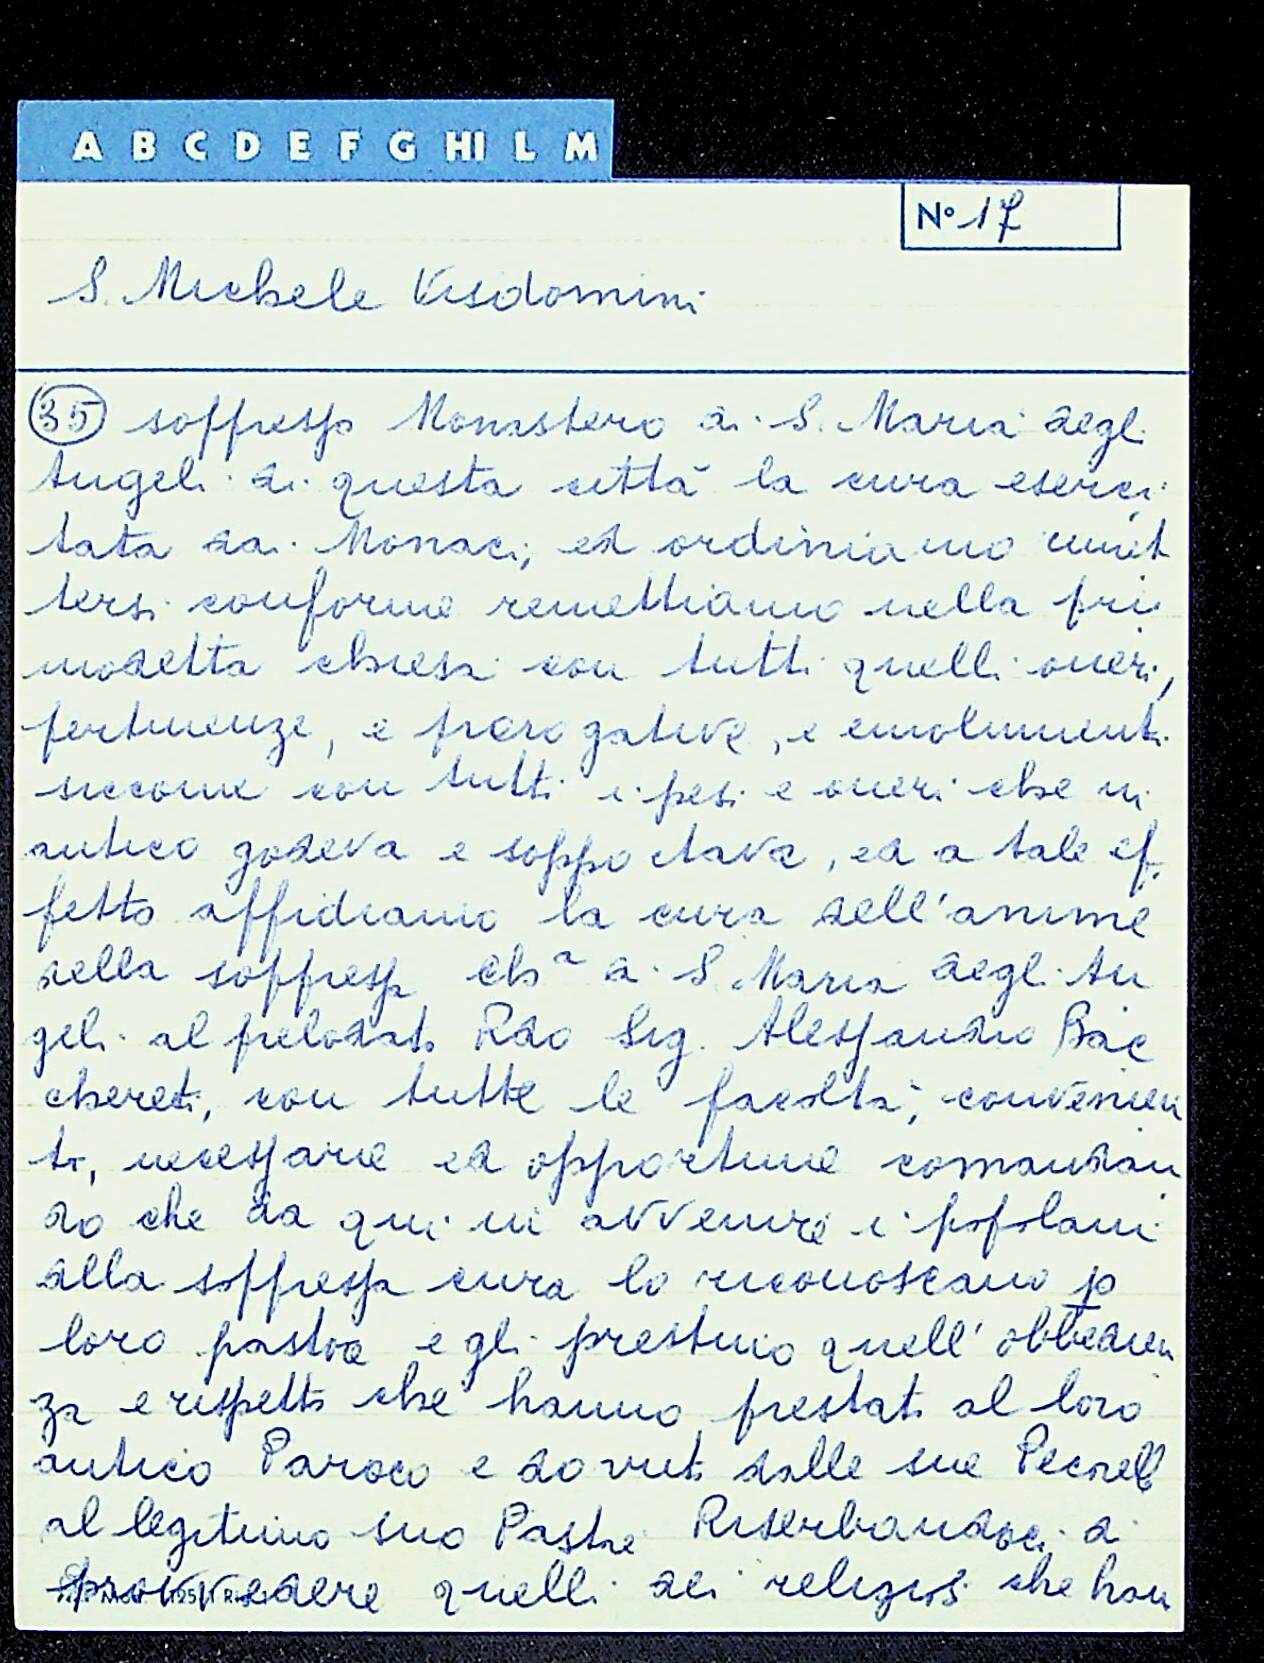 A B C D E F G HI L M
N° 17
S. Michele Visdomini
(35) soppresso Monastero di S. Maria degl
Angeli di questa città la cura eserci
tata dai Monaci, ed ordiniamo
tersi conforme remettiamo nella pri
modetta chiesa con tutti quelli oneri,
pertinenze, e prerogative, e emolumenti
siccome con tutti i pesi e oneri che in
antico godeva e sopportava, ed a tale ef
fetto affidiamo la cura dell'anime
della soppressa chª di S. Maria degli An
geli al prelodato Rdo Sig. Alessandro Bac
chereti, con tutte le facoltà, convenien
ti, necessarie ed opportune comandan
do che da qui in avvenire i popolani
della soppressa cura lo riconoscano p
loro pastore e gli prestino quell'obbedien
za e rispetto che hanno prestato al loro
antico Paroco e dovuti dalle sue Pecorell
al legitimo suo Pastore Riserbandoci di
provvedere quelli dei religiosi che han